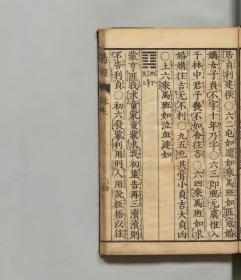 居貞利建侯○六二屯如邅如乘馬班如匪寇婚
媾女子貞不字十年乃字○六三即鹿无虞惟入
于林中君子幾不如舍往吝○六四乘馬班如求
婚媾往吉无不利○九五屯其膏小貞吉大貞凶
○上六乘馬班如泣血漣如
蒙亨匪我求童蒙童蒙求我初筮告再三瀆瀆則
不告利貞○初六發蒙利用刑人用說桎梏以往